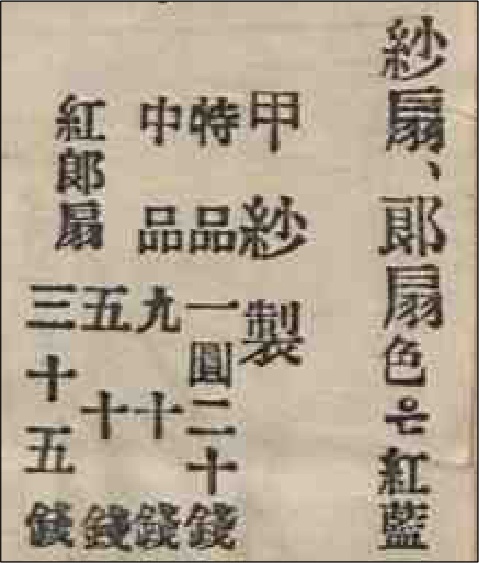 紗扇、郎扇色은紅藍
甲紗製
特品一圓二十錢
中品九十錢
紅郎扇
五十錢
三十五錢